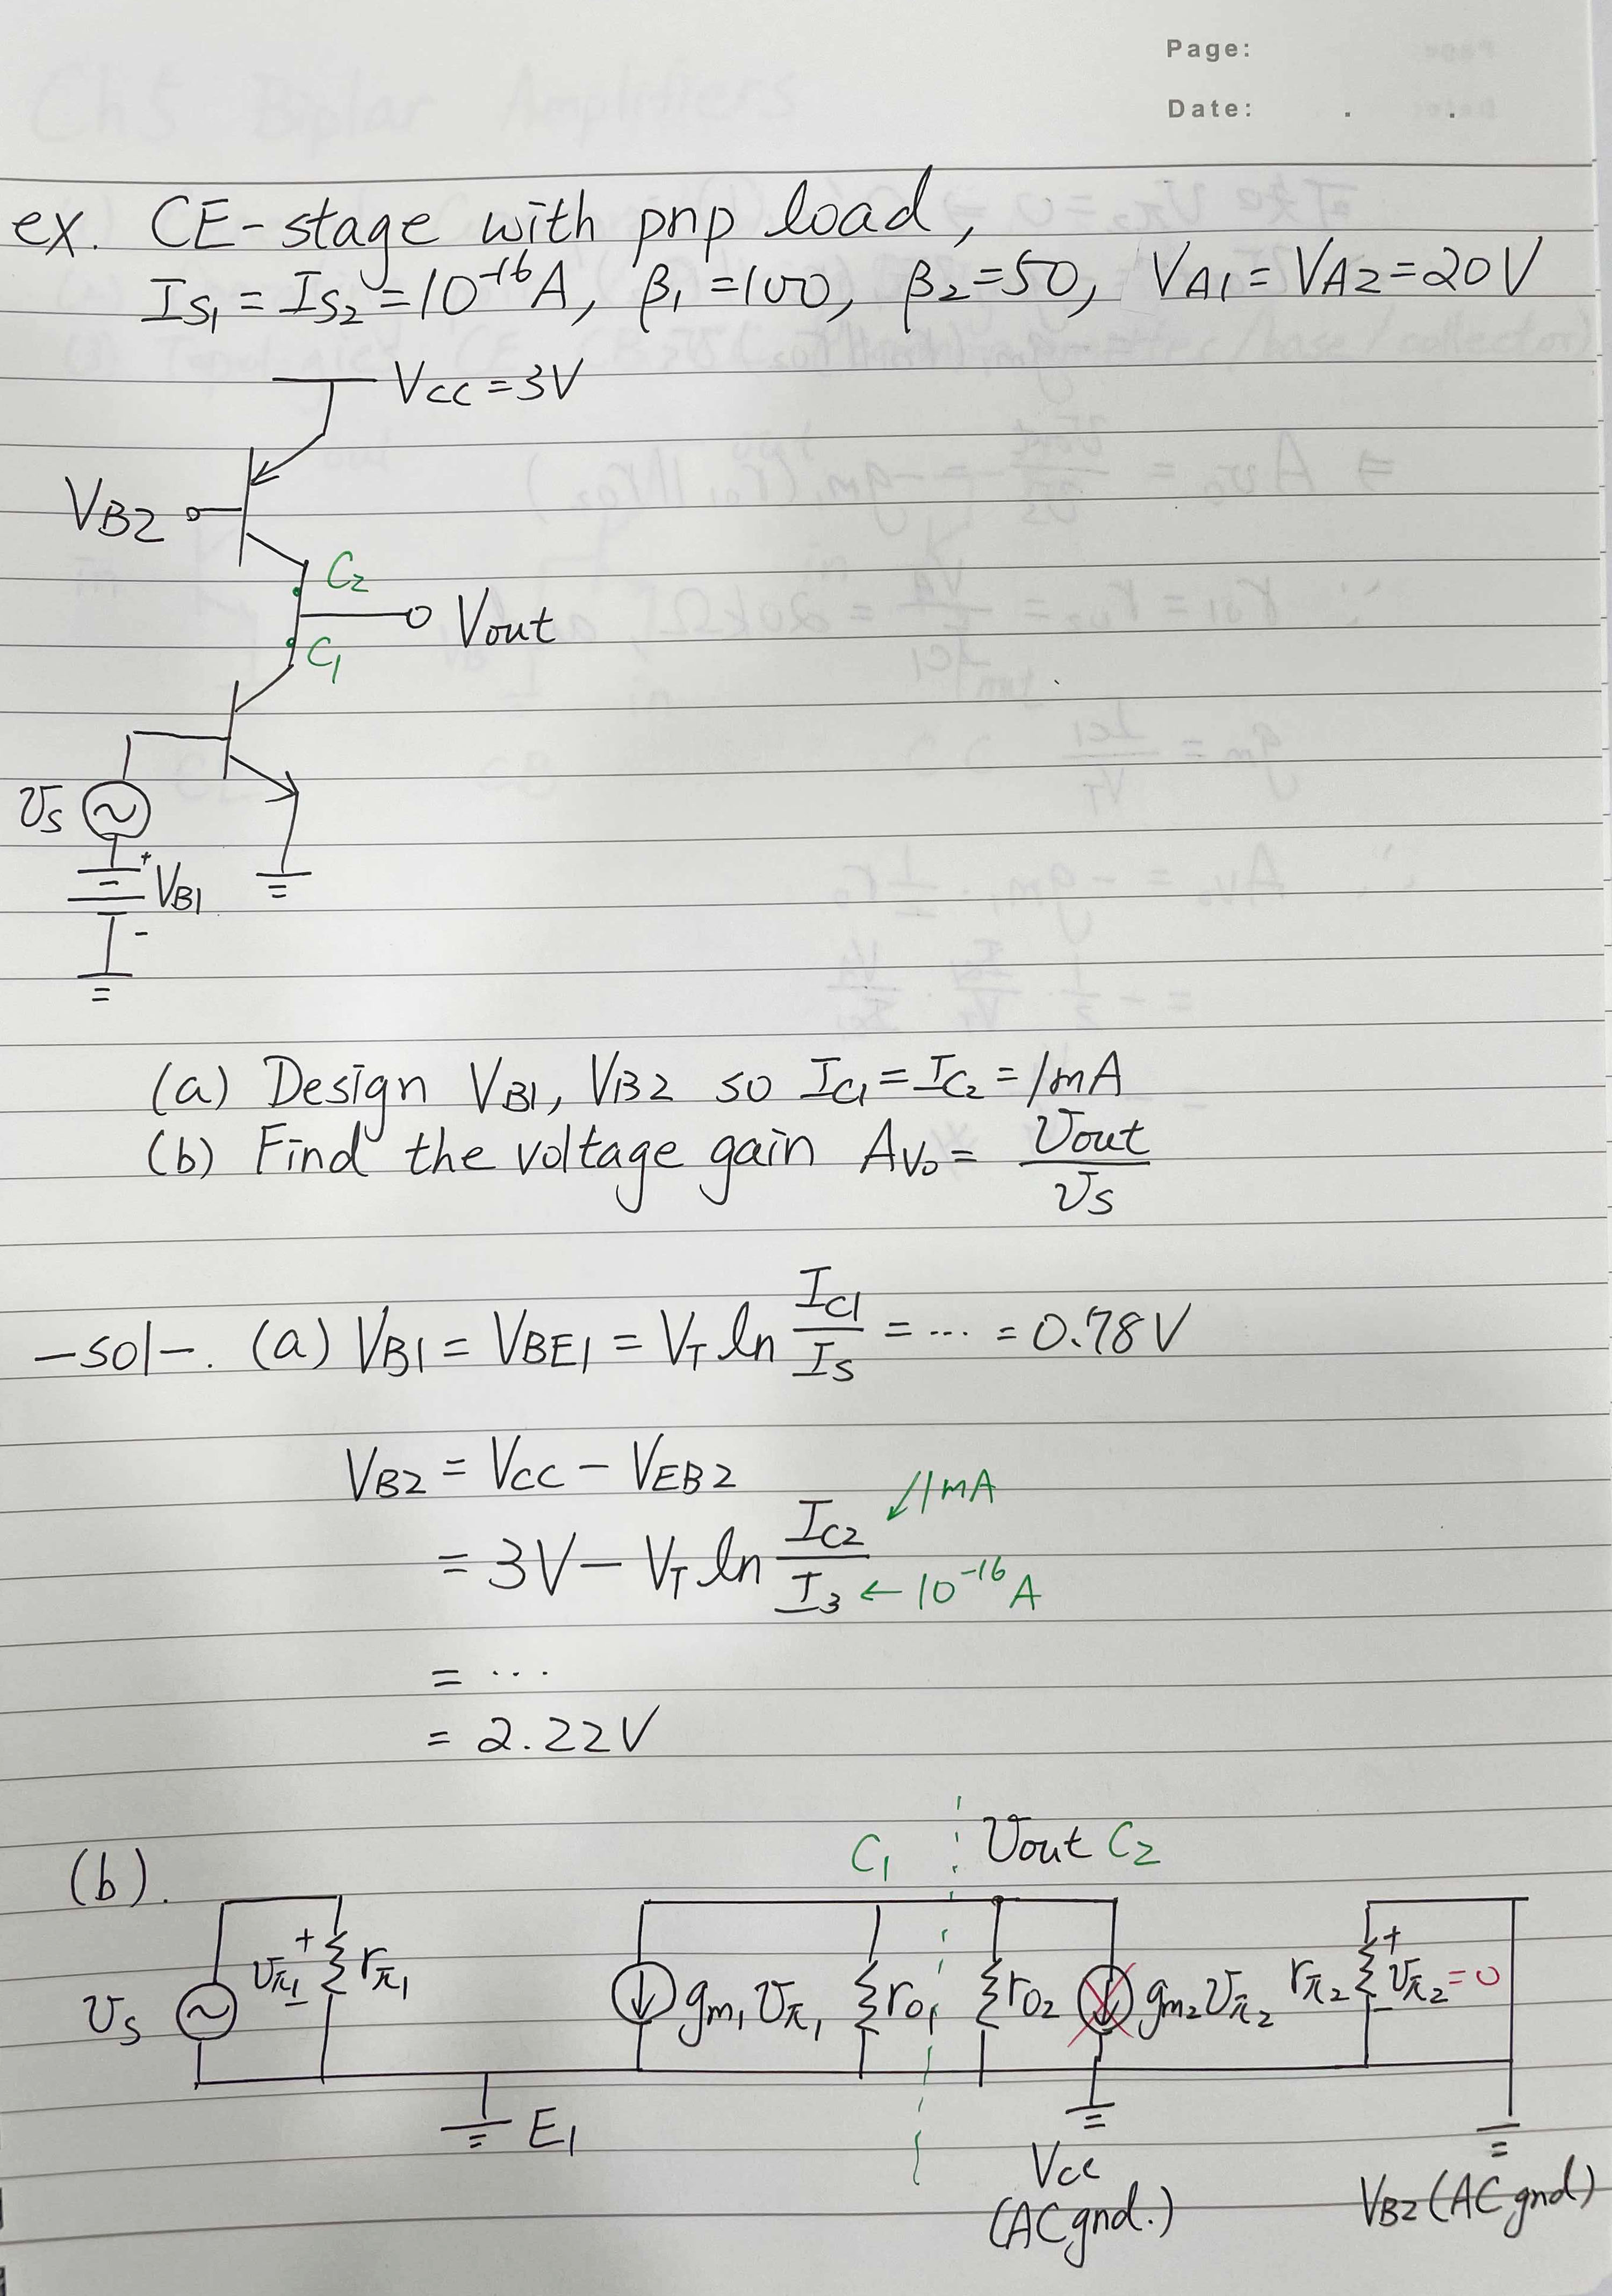 Page:
Date: . .
ex. CE-stage with pnp load,
I_S1 = I_S2 = 10^-16 A, β1 = 100, β2 = 50, V_A1 = V_A2 = 20V
Vcc = 3V
V_B2
C2
Vout
C1
υs
+
V_B1
-
(a) Design V_B1, V_B2 so I_C1 = I_C2 = 1mA
(b) Find the voltage gain A_vo = υout / υs
-sol-. (a) V_B1 = V_BE1 = V_T ln I_C1 / I_S = ... = 0.78V
V_B2 = Vcc - V_EB2
= 3V - V_T ln I_C2 / I_3 ↙1mA ← 10^-16 A
= ...
= 2.22V
(b).
C1 υout C2
υs + υπ1 - rπ1 gm1 υπ1 ro1 ro2 gm2 υπ2 rπ2 + υπ2 = 0 -
E1
Vcc
(AC gnd.)
V_B2 (AC gnd)